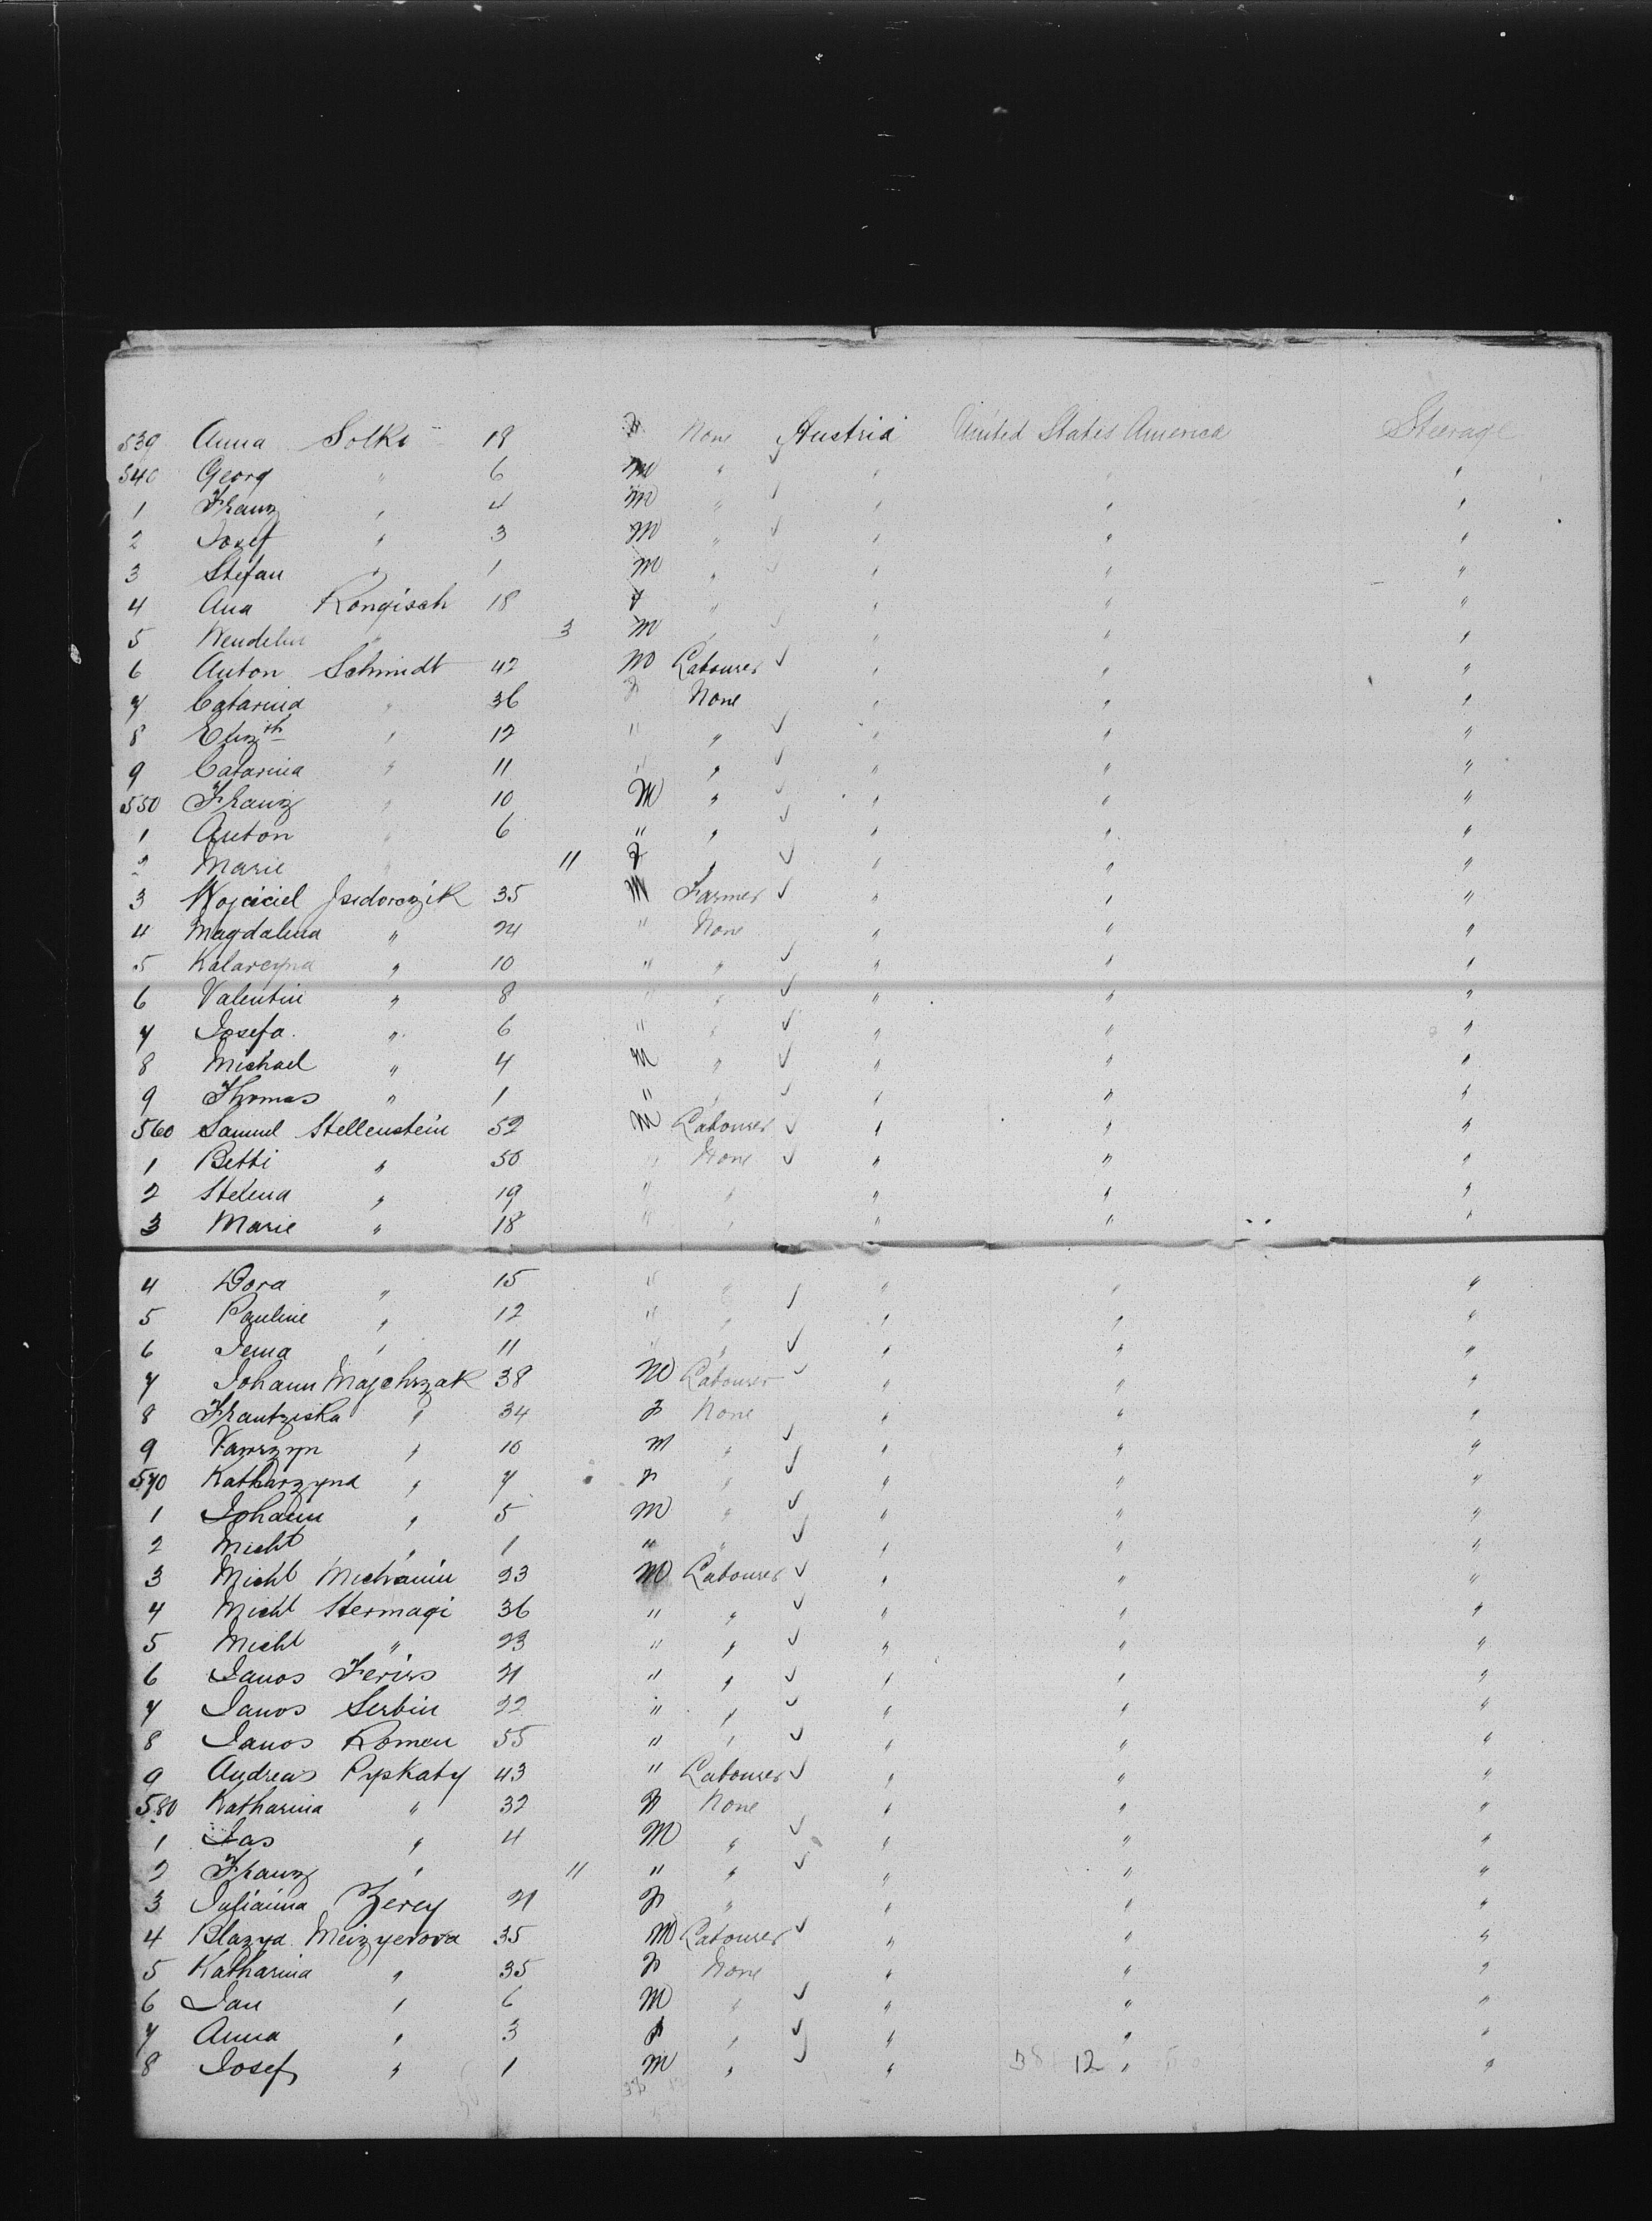 539 Anna Solki 18 F None Austria United States America Steerage
540 Georg " 6 M " " " "
1 Franz " 4 M " " " "
2 Josef " 3 M " " " "
3 Stefan " 1 M " " " "
4 Ana Rongisch 18 F " " " "
5 Wendelin " 3 M " " " "
6 Anton Schmidt 42 M Labourer " " "
7 Catarina " 36 F None " " "
8 Elizth " 12 " " " " "
9 Catarina " 11 " " " " "
550 Franz " 10 M " " " "
1 Anton " 6 " " " " "
2 Marie " 11 F " " " "
3 Wojciciel Jsidorczik 35 M Farmer " " "
4 Magdalena " 24 " None " " "
5 Katarcyna " 10 " " " " "
6 Valentin " 8 " " " " "
7 Josefa " 6 " " " " "
8 Michael " 4 M " " " "
9 Thomas " 1 " " " " "
560 Samuel Stellenstein 52 M Labourer " " "
1 Betti " 50 " None " " "
2 Stelena " 19 " " " " "
3 Marie " 18 " " " " "
4 Dora " 15 " " " " "
5 Pauline " 12 " " " " "
6 " 11 " " " " "
7 Johann Majchrzak 38 M Labourer " " "
8 Frantziska " 34 F None " " "
9 Vawrzyn " 10 M " " " "
570 Katharzyna " 7 F " " " "
1 Johann " 5 M " " " "
2 Michl " 1 " " " " "
3 Michl 23 M Labourer " " "
4 Michl Stermagi 36 " " " " "
5 Michl " 23 " " " " "
6 Janos 21 " " " " "
7 Janos Serbin 22 " " " " "
8 Janos Romen 55 " " " " "
9 Andreas Pypkaty 43 " Labourer " " "
580 Katharina " 32 F None " " "
1 Jas " 4 M " " " "
2 Franz " 11 " " " " "
3 Julianna Zerey 21 F " " " "
4 Blazya Meizyerova 35 M Labourer " " "
5 Katharina " 35 F None " " "
6 Jan " 6 M " " " "
7 Anna " 3 F " " " "
8 Josef " 1 M " " 12 " "